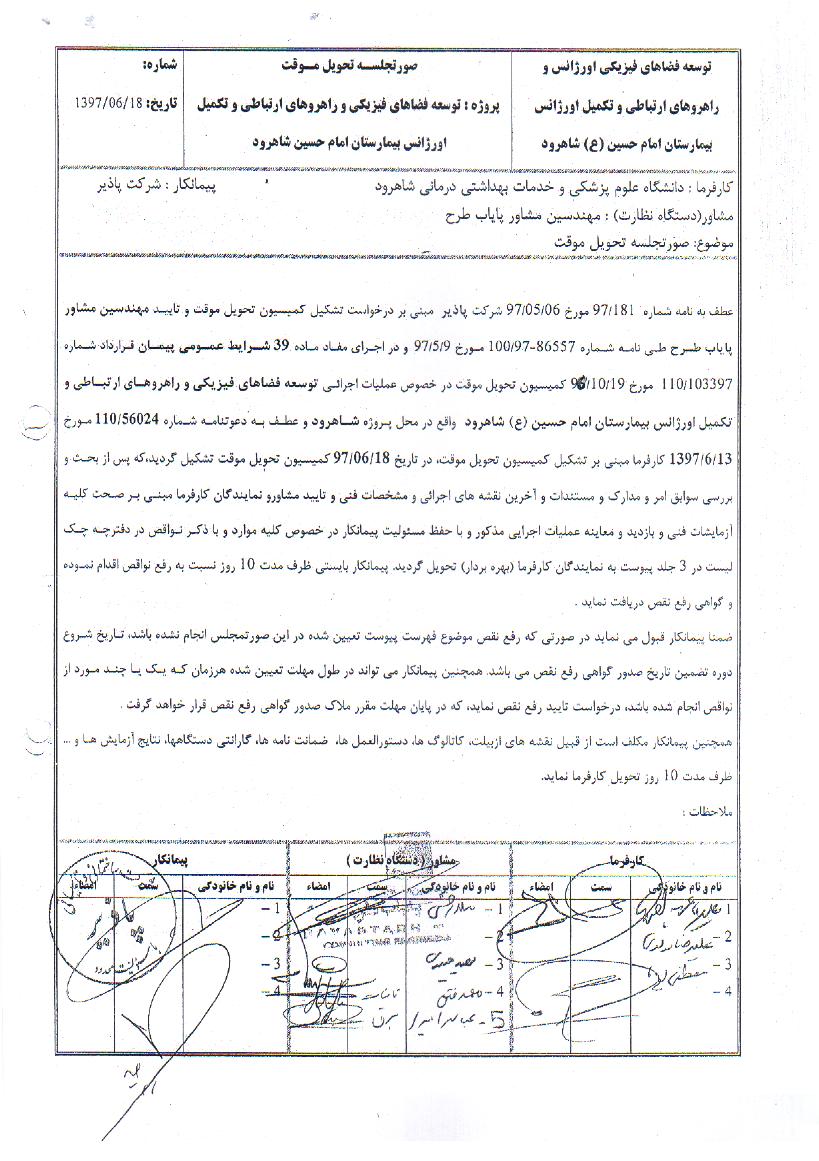 توسعه فضاهای فیزیکی اورژانس و
راهروهای ارتباطی و تکمیل اورژانس
بیمارستان امام حسین (ع) شاهرود
صورتجلسه تحویل موقت
پروژه : توسعه فضاهای فیزیکی و راهروهای ارتباطی و تکمیل
اورژانس بیمارستان امام حسین شاهرود
شماره:
تاریخ: 1397/06/18
کارفرما : دانشگاه علوم پزشکی و خدمات بهداشتی درمانی شاهرود پیمانکار : شرکت پاذیر
مشاور(دستگاه نظارت) : مهندسین مشاور پایاب طرح
موضوع: صورتجلسه تحویل موقت
عطف به نامه شماره 97/181 مورخ 97/05/06 شرکت پاذیر مبنی بر درخواست تشکیل کمیسیون تحویل موقت و تایید مهندسین مشاور
پایاب طرح طی نامه شماره 86557-100/97 مورخ 97/5/9 و در اجرای مفاد ماده 39 شرایط عمومی پیمان قرارداد شماره
110/103397 مورخ 96/10/19 کمیسیون تحویل موقت در خصوص عملیات اجرائی توسعه فضاهای فیزیکی و راهروهای ارتباطی و
تکمیل اورژانس بیمارستان امام حسین (ع) شاهرود واقع در محل پروژه شاهرود و عطف به دعوتنامه شماره 110/56024 مورخ
1397/6/13 کارفرما مبنی بر تشکیل کمیسیون تحویل موقت، در تاریخ 97/06/18 کمیسیون تحویل موقت تشکیل گردید،که پس از بحث و
بررسی سوابق امر و مدارک و مستندات و آخرین نقشه های اجرائی و مشخصات فنی و تایید مشاورو نمایندگان کارفرما مبنی بر صحت کلیه
آزمایشات فنی و بازدید و معاینه عملیات اجرایی مذکور و با حفظ مسئولیت پیمانکار در خصوص کلیه موارد و با ذکر نواقص در دفترچه چک
لیست در 3 جلد پیوست به نمایندگان کارفرما (بهره بردار) تحویل گردید. پیمانکار بایستی ظرف مدت 10 روز نسبت به رفع نواقص اقدام نموده
و گواهی رفع نقص دریافت نماید .
ضمنا پیمانکار قبول می نماید در صورتی که رفع نقص موضوع فهرست پیوست تعیین شده در این صورتمجلس انجام نشده باشد، تاریخ شروع
دوره تضمین تاریخ صدور گواهی رفع نقص می باشد. همچنین پیمانکار می تواند در طول مهلت تعیین شده هرزمان که یک یا چند مورد از
نواقص انجام شده باشد، درخواست تایید رفع نقص نماید، که در پایان مهلت مقرر ملاک صدور گواهی رفع نقص قرار خواهد گرفت .
همچنین پیمانکار مکلف است از قبیل نقشه های ازبیلت، کاتالوگ ها، دستورالعمل ها، ضمانت نامه ها، گارانتی دستگاهها، نتایج آزمایش ها و ...
ظرف مدت 10 روز تحویل کارفرما نماید.
ملاحظات :
کارفرما مشاور ( دستگاه نظارت ) پیمانکار
نام و نام خانوادگی سمت امضاء نام و نام خانوادگی سمت امضاء نام و نام خانوادگی سمت امضاء
1 - 1 - 1 -
2 - 2 - 2 -
3 - 3 - 3 -
4 - 4 - 4 -
5 - برق